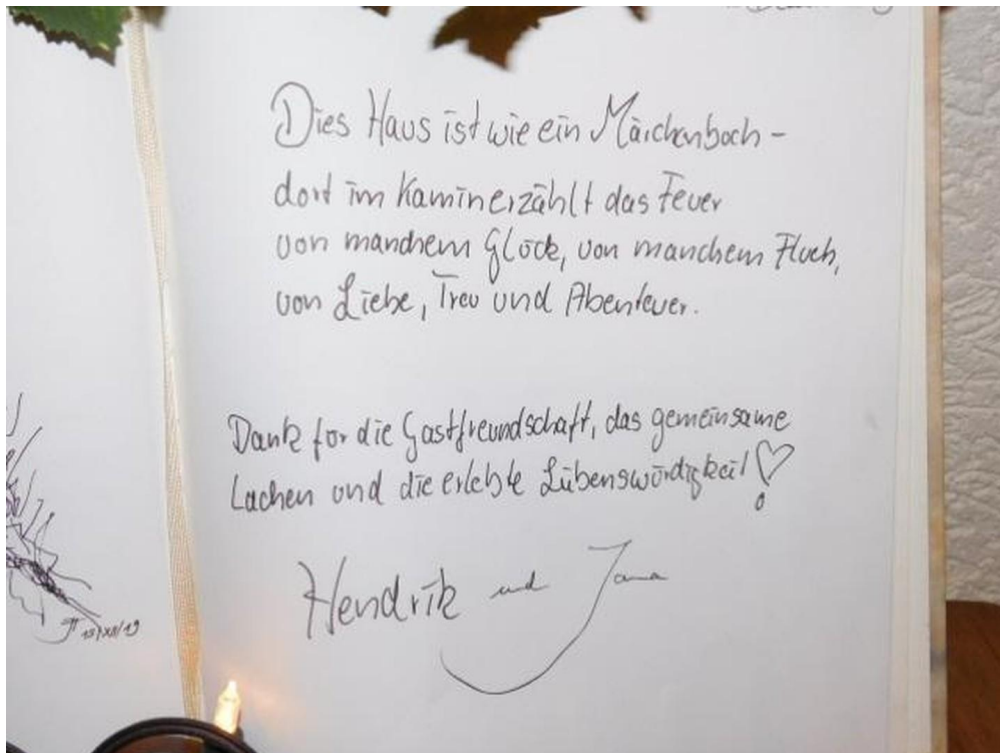 Dies Haus ist wie ein Märchenbuch –
dort im Kamin erzählt das Feuer
von manchem Glück, von manchem Fluch,
von Liebe, Treu und Abenteuer.
Dank für die Gastfreundschaft, das gemeinsame
Lachen und die erlebte Lübenswürdigkeit!
Hendrik und Jana